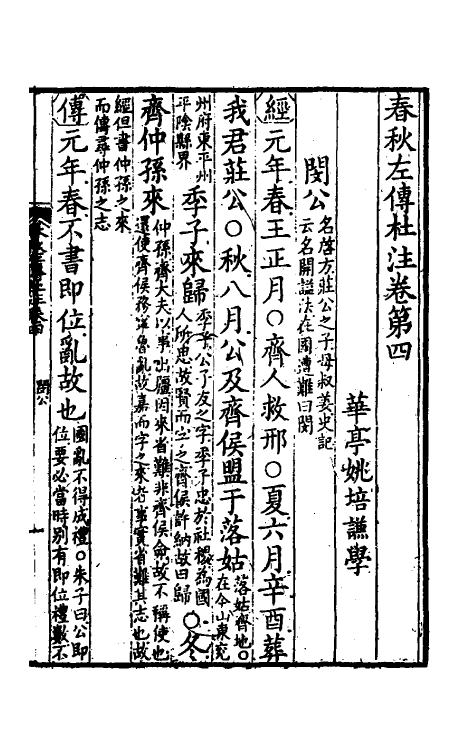 春秋左傳杜注卷第四
華亭姚培謙學
閔公名啓方莊公之子母叔姜史記云名開謚法在國遭難曰閔
經元年春王正月○齊人救邢○夏六月辛酉葬
我君莊公○秋八月公及齊侯盟于落姑落姑齊地○在今山東兖
州府東平州平陰縣界季子來歸季子公子友之字季子忠於社稷為國人所思故賢而字之齊侯許納故曰歸○冬
齊仲孫來仲孫齊大夫以事出疆因來省難非齊侯命故不稱使也還使齊侯務寧魯亂故嘉而字之來者事實省難其志也故
經但書仲孫之來而傳尋仲孫之志
傳元年春不書即位亂故也國亂不得成禮○朱子曰公即位要必當時别有即位禮數不
閔公
一